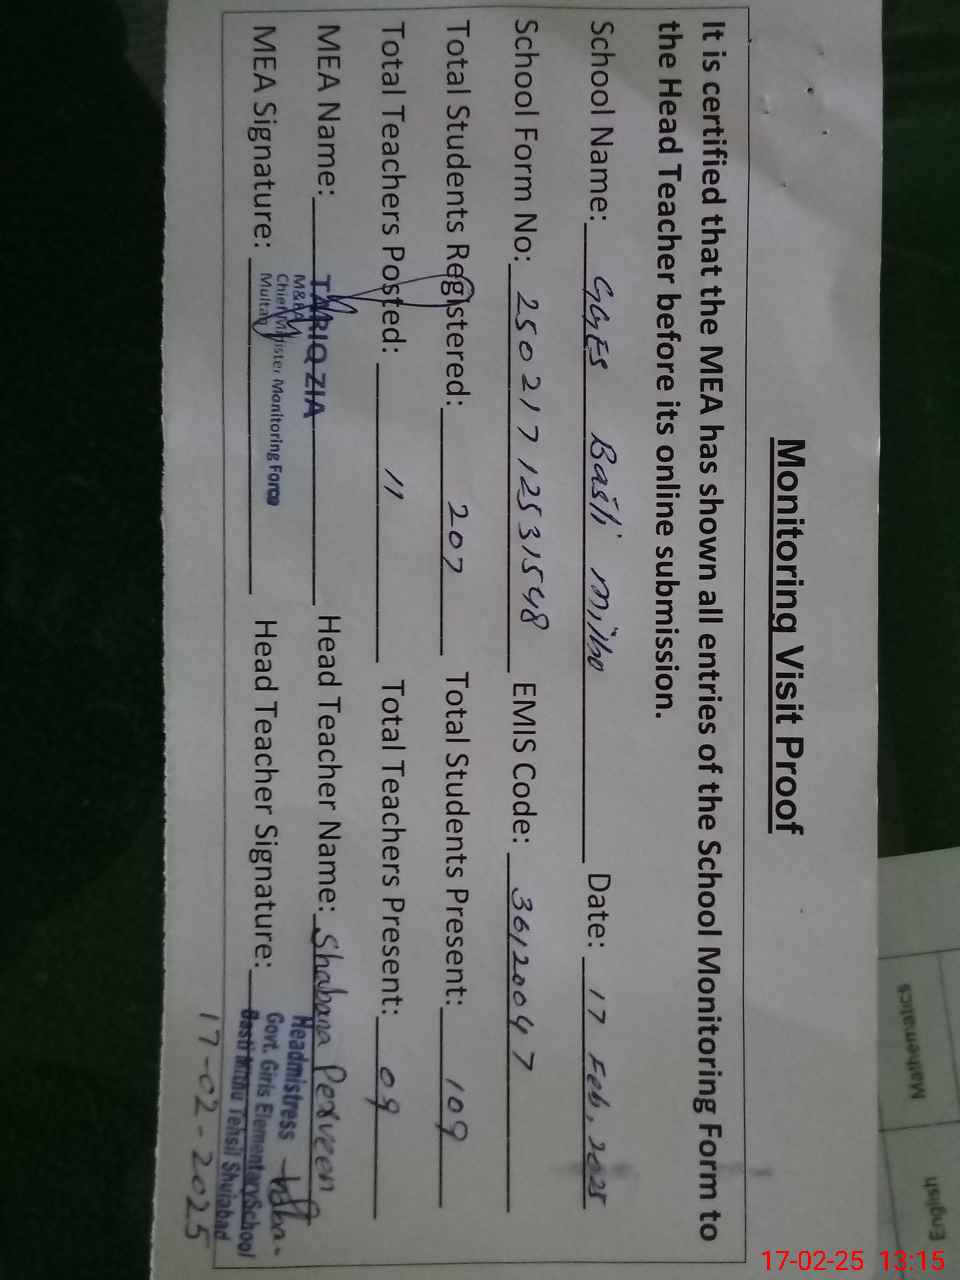 Monitoring Visit Proof
It is certified that the MEA has shown all entries of the School Monitoring Form to
the Head Teacher before its online submission.
School Name: GGES Basti Mithu Date: 17 Feb, 2025
School Form No: 25021712531548 EMIS Code: 36120047
Total Students Registered: 207 Total Students Present: 109
Total Teachers Posted: 11 Total Teachers Present: 09
MEA Name: TARIQ ZIA Head Teacher Name: Shabana Perveen
M&EA
Chief Minister Monitoring Force
Multan
MEA Signature: Head Teacher Signature:
Headmistress
Govt. Girls Elementary School
Basti Mithu Tehsil Shujabad
17-02-2025
Mathematics
English
17-02-25 13:15